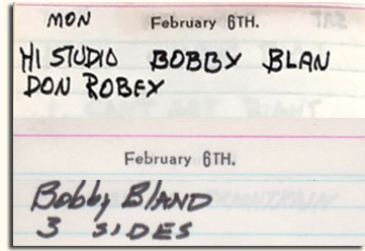 MON February 6TH.
HI STUDIO BOBBY BLAN
DON ROBEY
February 6TH.
Bobby BLAND
3 SIDES